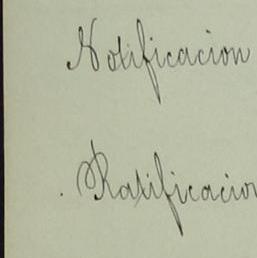 Notificacion
Ratificacion